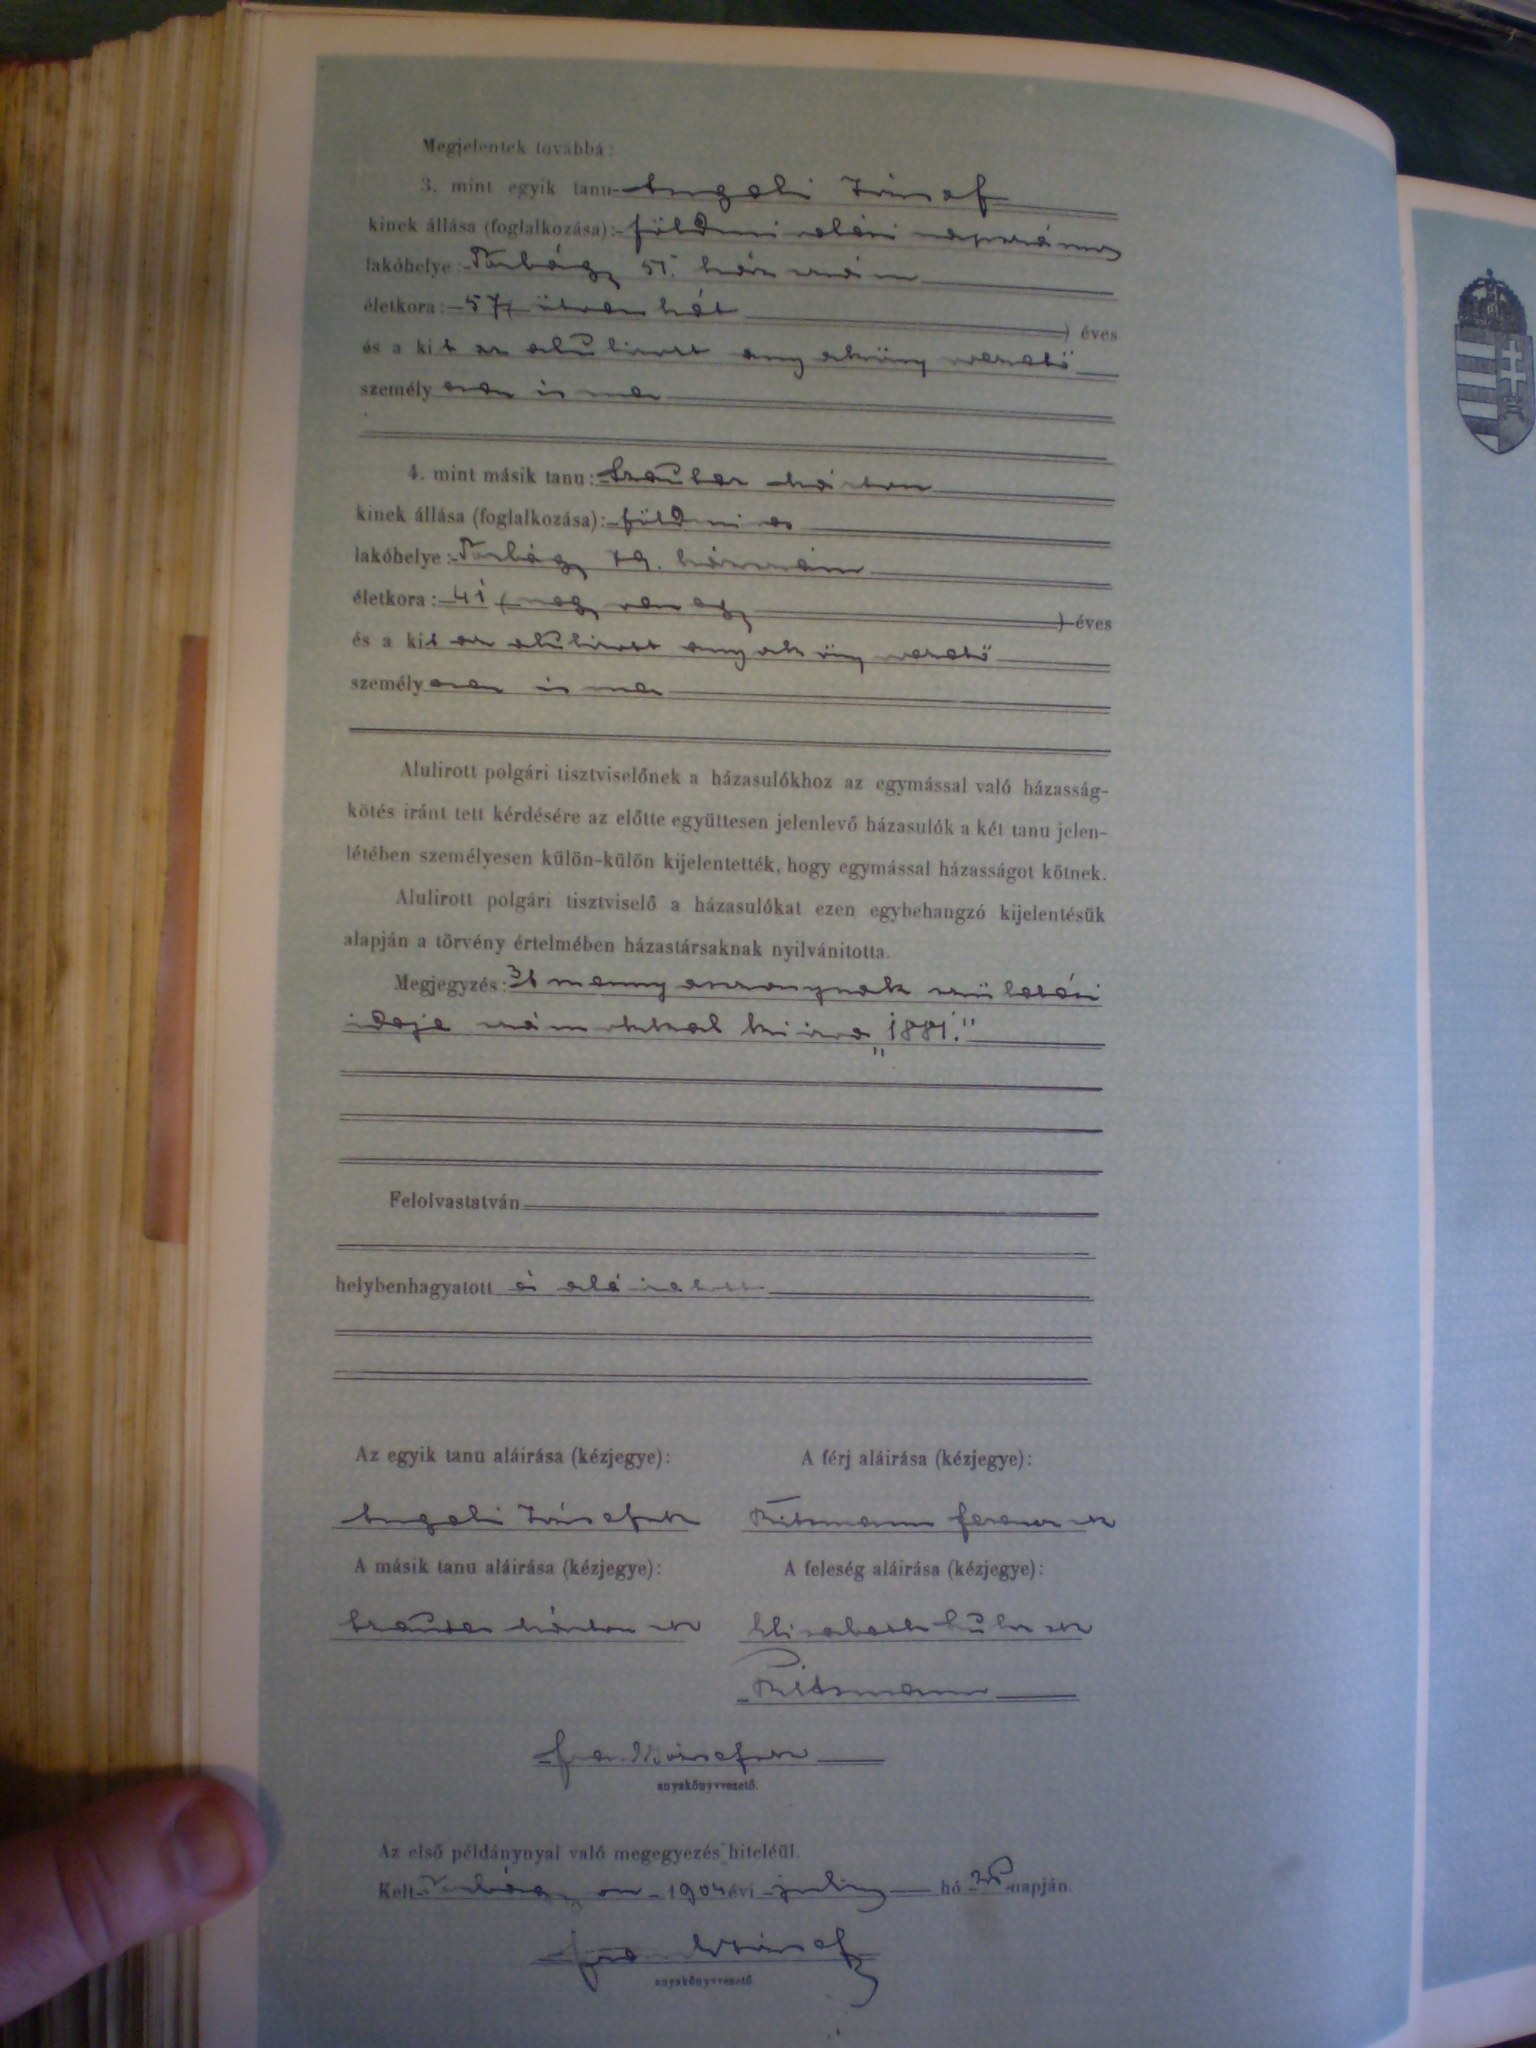 Megjelentek továbbá:
3. mint egyik tanu Angeli József
kinek állása (foglalkozása): földmivelési napszámos
lakóhelye: Torbágy 51. házszám
életkora: 57 (ötvenhét ) éves
és a kit az alulirott anyakönyvvezető
személyesen ismer
4. mint másik tanu: Márton
kinek állása (foglalkozása): földmives
lakóhelye: Torbágy 79. házszám
életkora: 41 (negyvenegy ) éves
és a kit az alulirott anyakönyvvezető
személyesen ismer
Alulirott polgári tisztviselőnek a házasulókhoz az egymással való házasság-
kötés iránt tett kérdésére az előtte együttesen jelenlevő házasulók a két tanu jelen-
létében személyesen külön-külön kijelentették, hogy egymással házasságot kötnek.
Alulirott polgári tisztviselő a házasulókat ezen egybehangzó kijelentésük
alapján a törvény értelmében házastársaknak nyilvánitotta.
Megjegyzés: A mennyasszonynak születési
ideje számokkal kiirva „1881."
Felolvastatván
helybenhagyatott és aláiratott
Az egyik tanu aláirása (kézjegye): A férj aláirása (kézjegye):
Angeli József sk Ritzmann Ferencz sk
A másik tanu aláirása (kézjegye): A feleség aláirása (kézjegye):
Márton sk Elisabeth sk
Ritzmann
József sk
anyakönyvvezető.
Az első példánynyal való megegyezés hiteléül.
Kelt Torbágyon 1904 évi july hó napján.
József
anyakönyvvezető